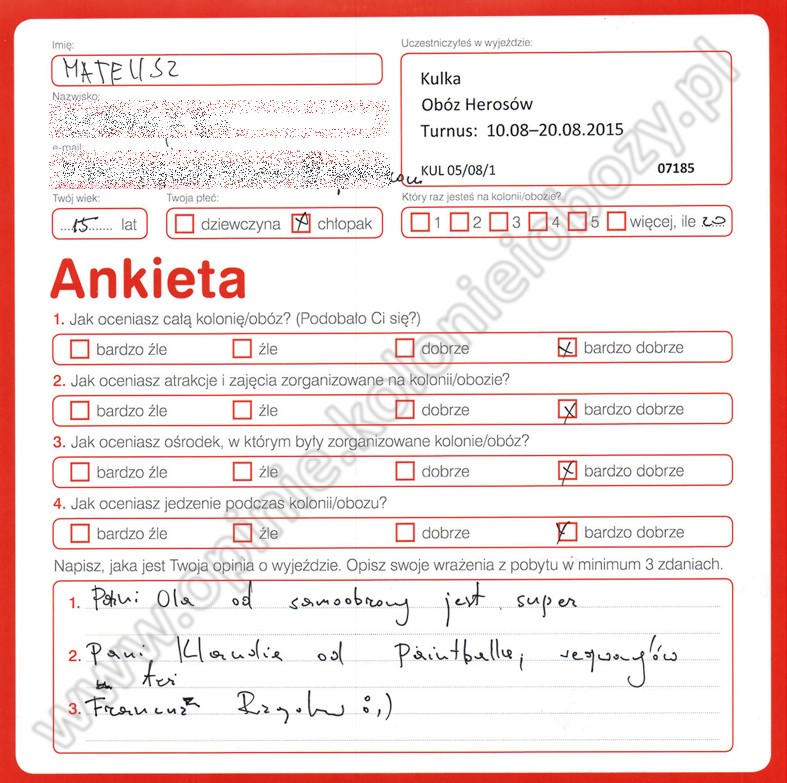 Imię:
MATEUSZ
Uczestniczyłeś w wyjeździe:
Kulka
Obóz Herosów
Turnus: 10.08–20.08.2015
KUL 05/08/1 07185
Nazwisko:
e-mail:
com
Twój wiek:
15 lat
Twoja płeć:
dziewczyna chłopak
Który raz jesteś na kolonii/obozie?
1 2 3 4 5 więcej, ile 20
Ankieta
1. Jak oceniasz całą kolonię/obóz? (Podobało Ci się?)
bardzo źle źle dobrze bardzo dobrze
2. Jak oceniasz atrakcje i zajęcia zorganizowane na kolonii/obozie?
bardzo źle źle dobrze bardzo dobrze
3. Jak oceniasz ośrodek, w którym były zorganizowane kolonie/obóz?
bardzo źle źle dobrze bardzo dobrze
4. Jak oceniasz jedzenie podczas kolonii/obozu?
bardzo źle źle dobrze bardzo dobrze
Napisz, jaka jest Twoja opinia o wyjeździe. Opisz swoje wrażenia z pobytu w minimum 3 zdaniach.
1. Pani Ola od samoobrony jest super
2. Pani Klaudia od Paintballa, segwayów
też
3. Franciszek :,)
www.opinie.kolonieiobozy.pl